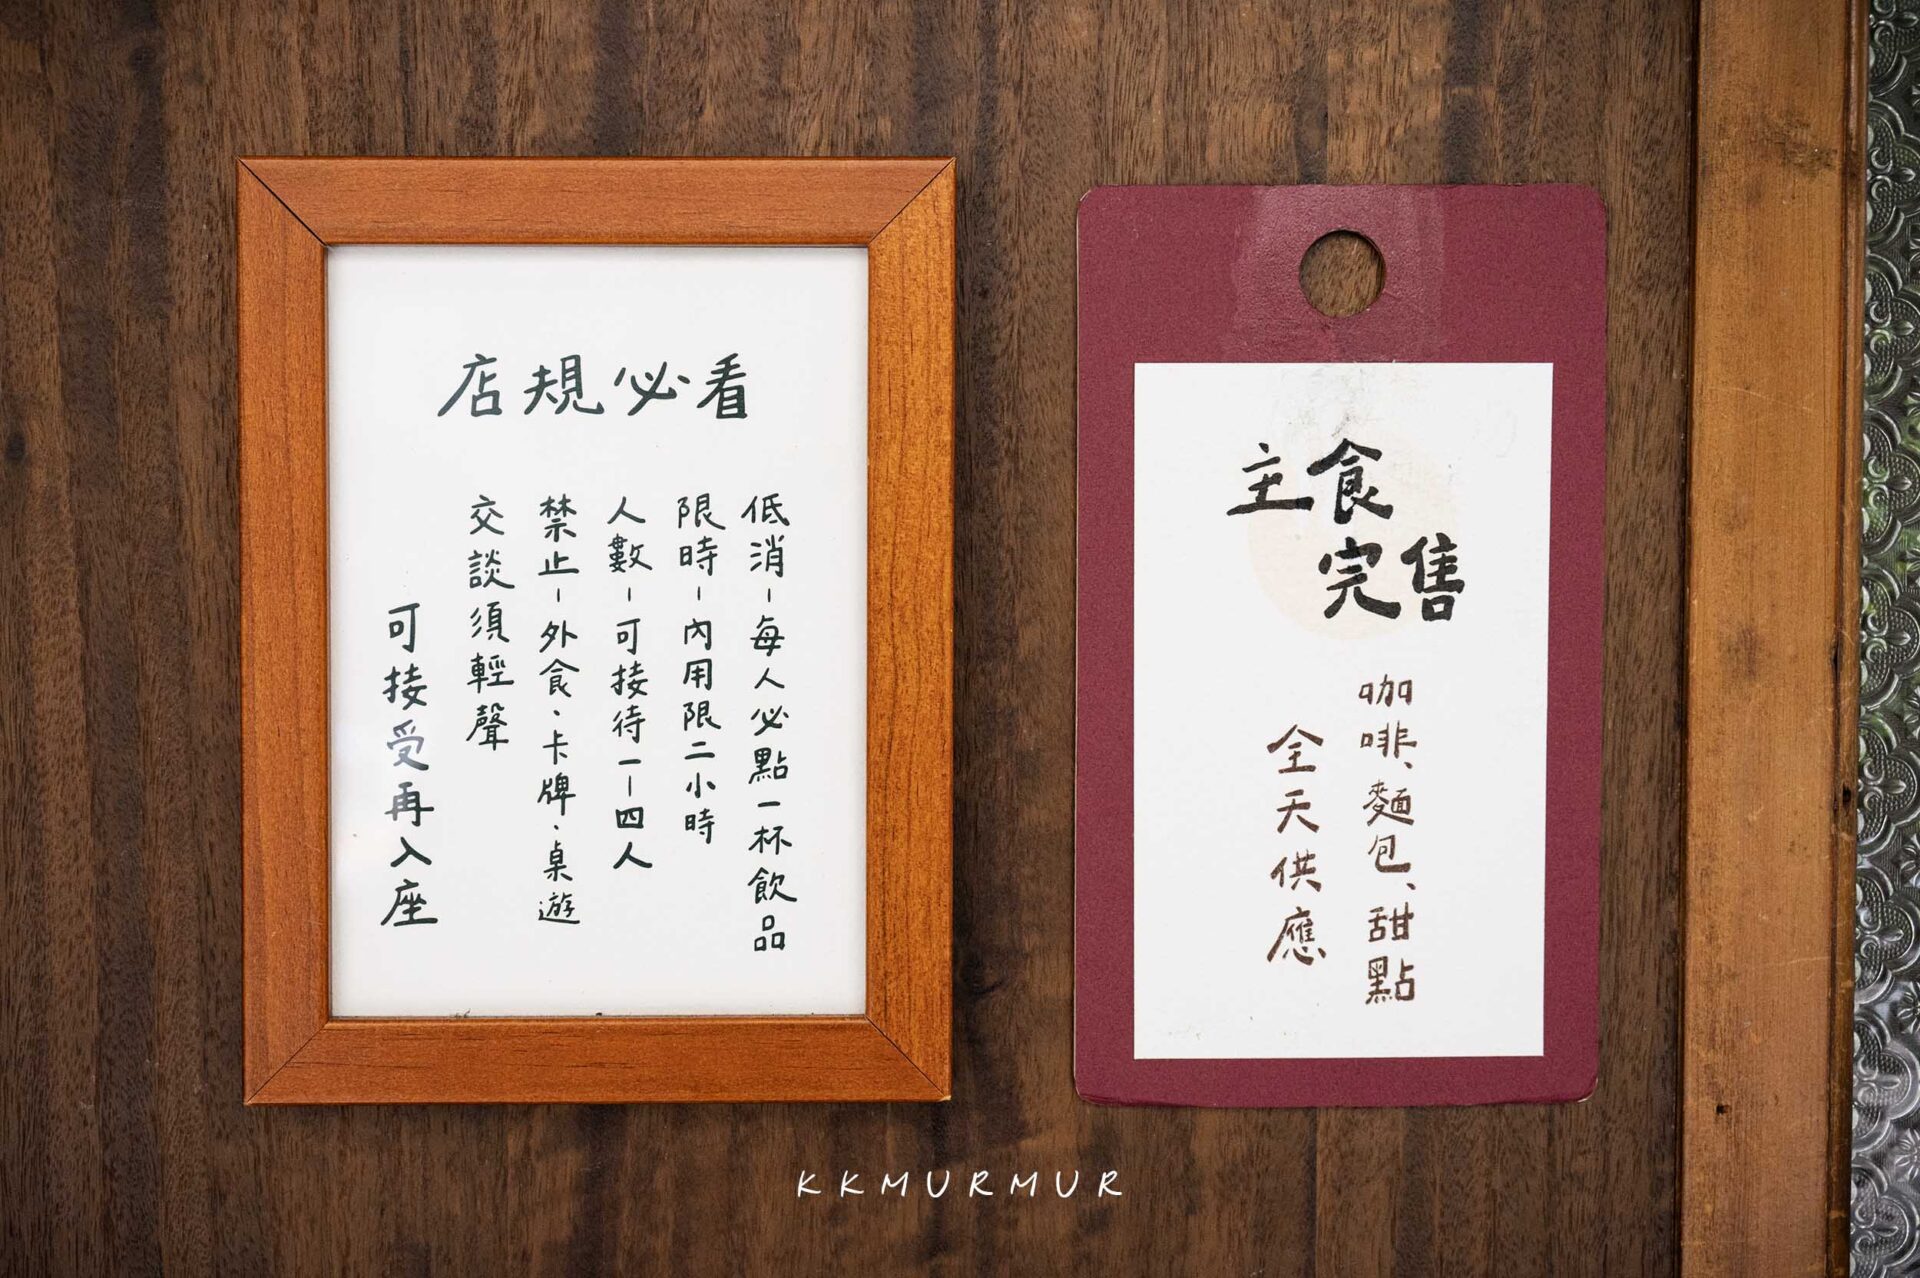 店規必看
低消-每人必點一杯飲品
限時-內用限二小時
人數-可接待一-四人
禁止-外食、卡牌、桌遊
交談須輕聲
可接受再入座
主食
完售
咖啡、麵包、甜點
全天供應
KKMURMUR